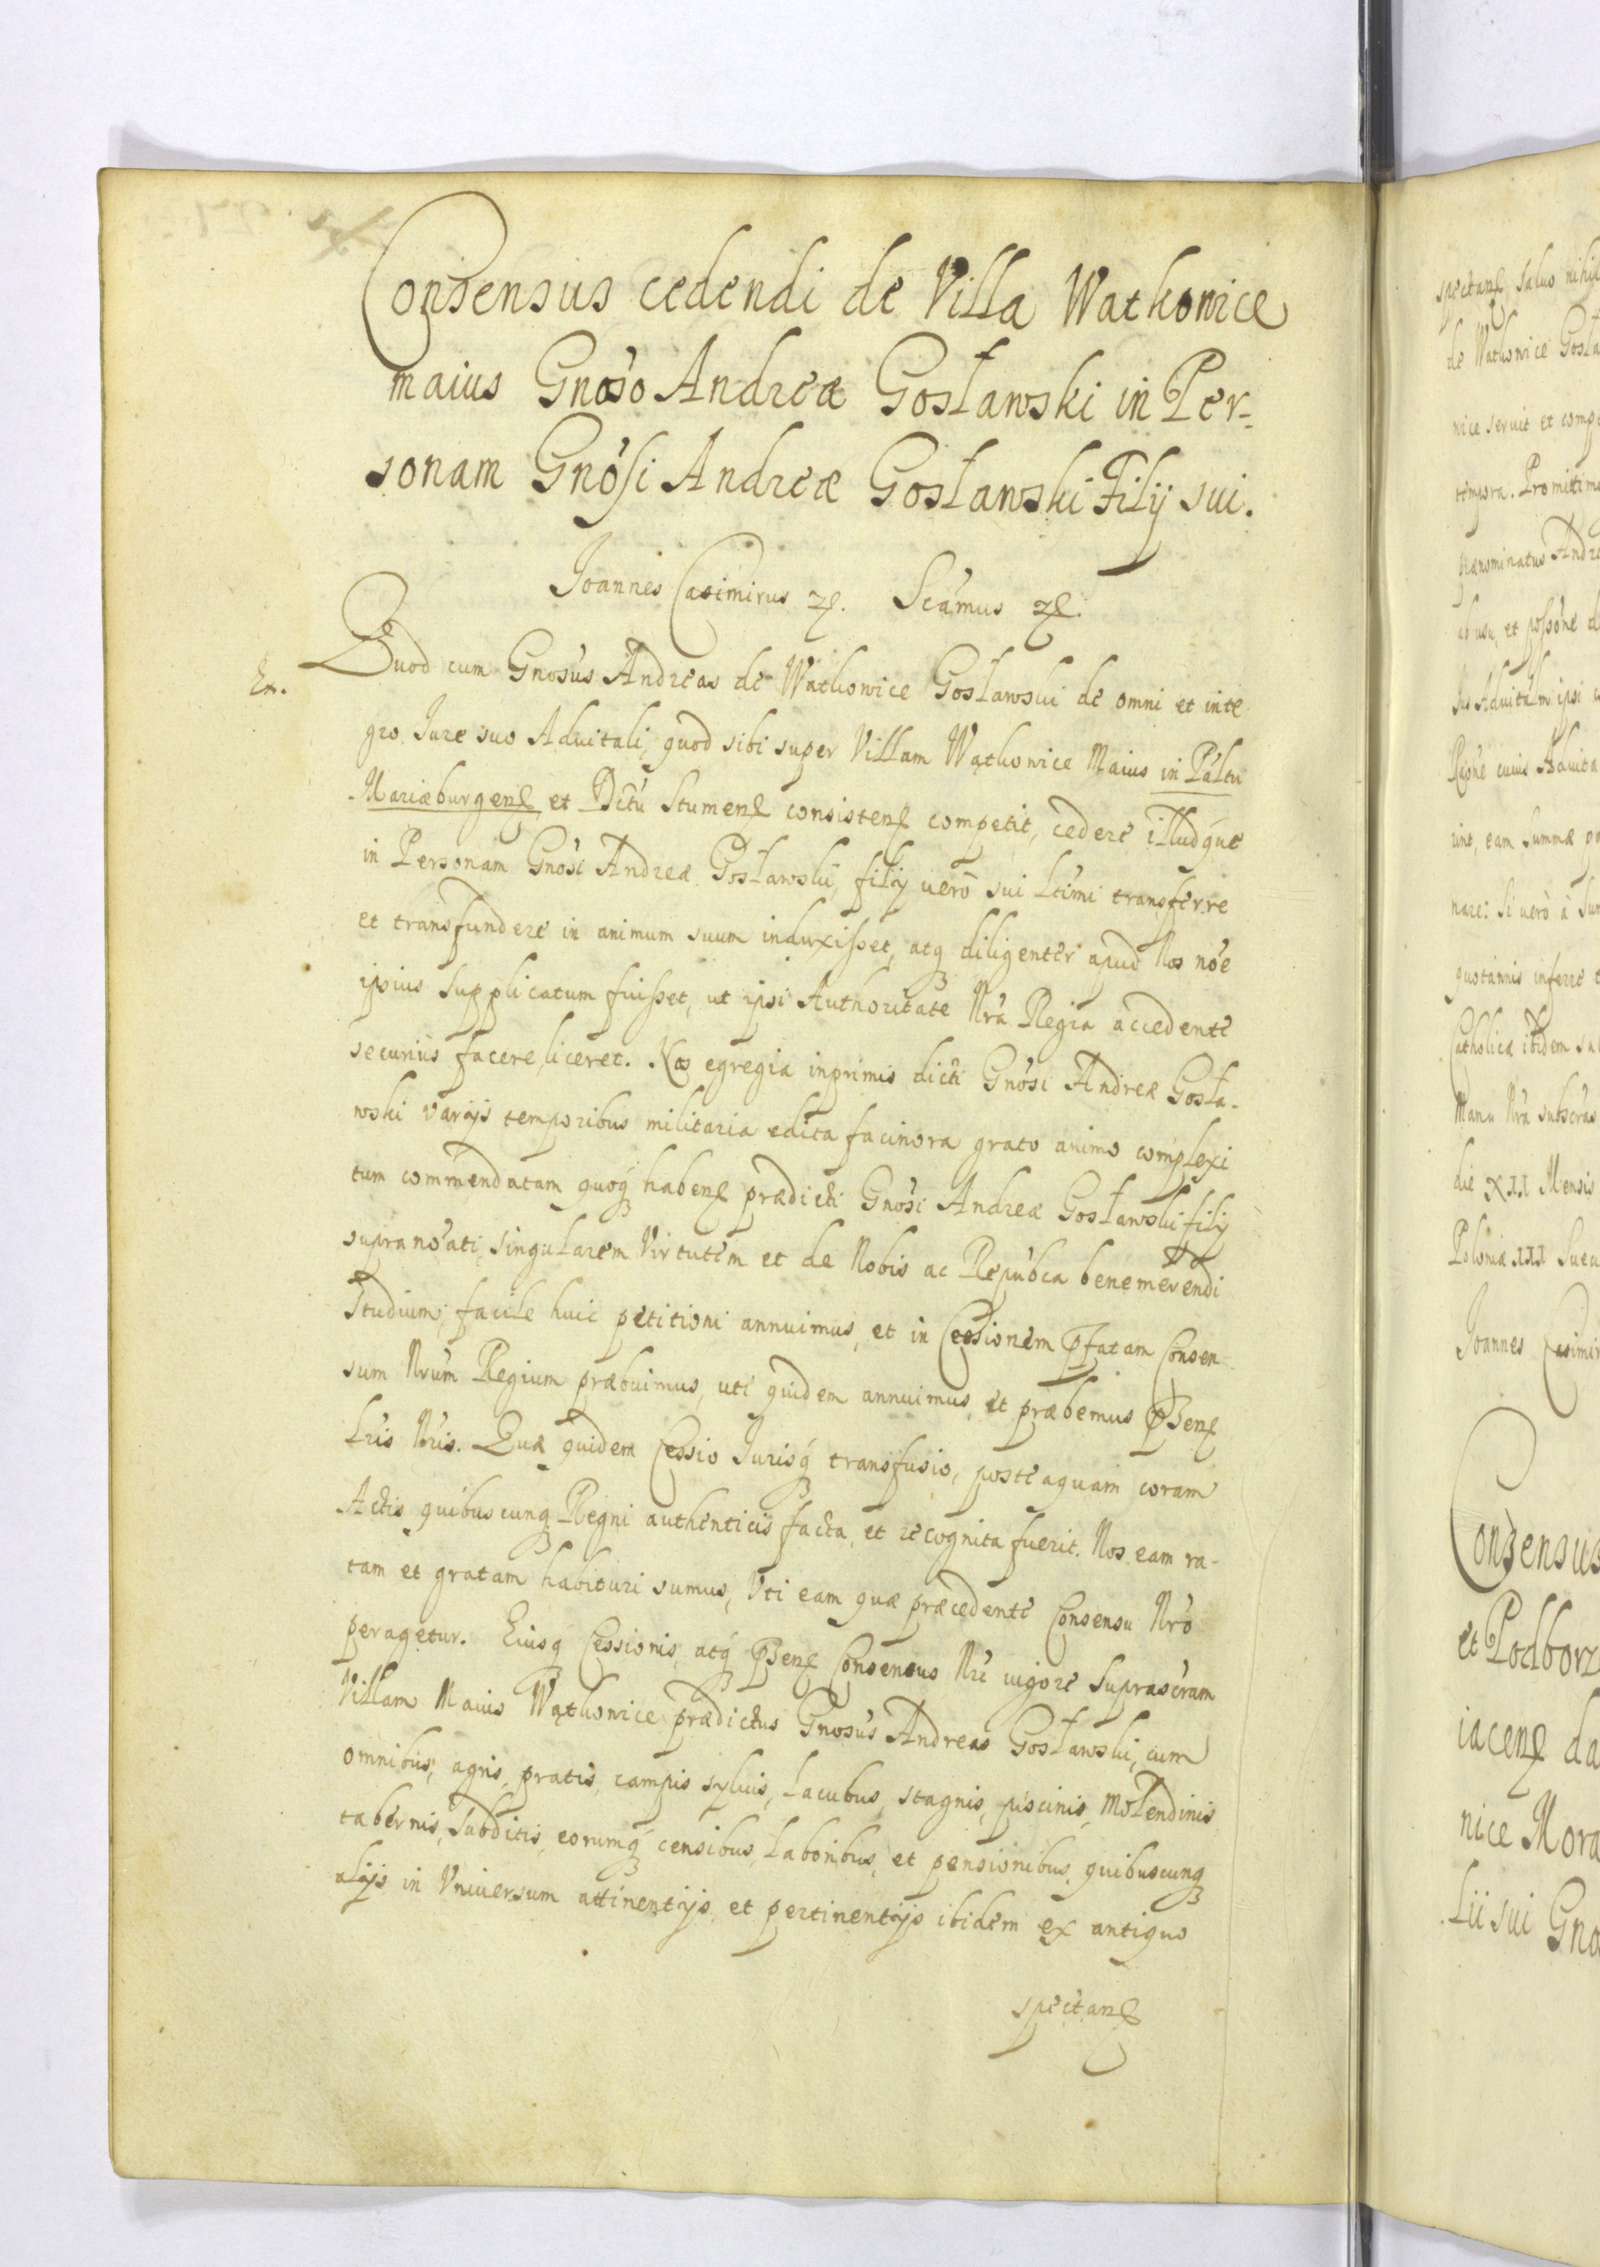 Consensus cedendi de Villa Watkowice
maius Gnoso Andreæ Gosławski in Per-
sonam Gnosi Andreæ Gosławski Filij sui.
Joannes Casimirus etc. Scamus etc.
Ex.
Quod cum Gnosus Andreas de Watkowice Gosławski de omni et inte
gro Jure suo Aduitali, quod sibi super Villam Wątkowice Maius in Paltu
Mariæburgen et Dctu Stumen consisten competit, cedere illudque
in Personam Gnosi Andreæ Gosławski, filij uerò sui ltimi transferre
et transfundere in animum suum induxisset, atq diligenter apud Nos noe
ipsius supplicatum fuisset, ut ipsi Authoritate Nra Regia accedente
securius facere liceret. Nos egregia inprimis dicti Gnosi Andreæ Gosła-
wski varijs temporibus militaria edita facinora grato animo complexi
tum commendatam quoq haben prædicti Gnosi Andreæ Gosławski filij
supranoati, singularem Virtutem et de Nobis ac Repubca benemerendi
studium, facile huic petitioni annuimus, et in Cessionem pfatam Consen-
sum Nrum Regium præbuimus, uti quidem annuimus et præbemus psen
Lris Nris. Quæ quidem Cessio Jurisq transfusio, posteaquam coram
Actis quibuscunq Regni authenticis facta, et recognita fuerit. Nos eam ra-
tam et gratam habituri sumus, Uti eam quæ præcedente Consensu Nro
peragetur. Eiusq Cessionis atq psen Consensus Nri uigore suprascram
Villam Maius Wątkowice prædictus Gnosus Andreas Gosławski, cum
omnibus, agris, pratis, campis sylvis, Lacubus, stagnis, piscinis, Molendinis
tabernis, subditis, eorumq censibus, Laboribus, et pensionibus, quibuscunq
alijs in Vniuersum attinentijs, et pertinentijs ibidem ex antiquo
spectan
spectan saluo nihil
de Watkowice Gosła
nice seruit et comp
tempora. Promittim
Prænominatus Andre
ab usu et possone
Jus Aduitalm ipsi
Raone cuius Aduita
rint, eam summæ
nare: Si uerò à sum
quotannis inferre
Catholicæ ibidem sal
Manu Nra subscras
die XII Mensis
Poloniæ III Suecu
Joannes Casimir
Consensus
et Podborz
iacen da
nice Mora
Lii sui Gno